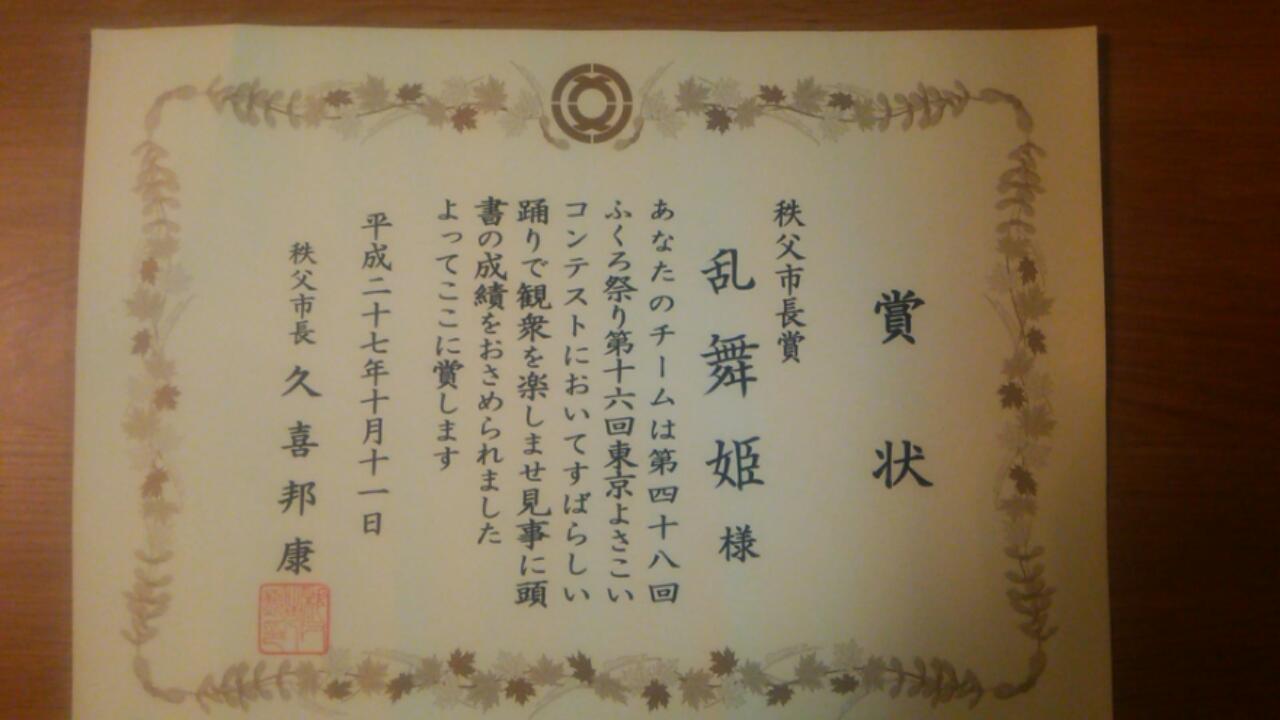 賞状
秩父市長賞
乱舞姫様
あなたのチームは第四十八回
ふくろ祭り第十六回東京よさこい
コンテストにおいてすばらしい
踊りで観衆を楽しませ見事に頭
書の成績をおさめられました
よってここに賞します
平成二十七年十月十一日
秩父市長 久喜邦康